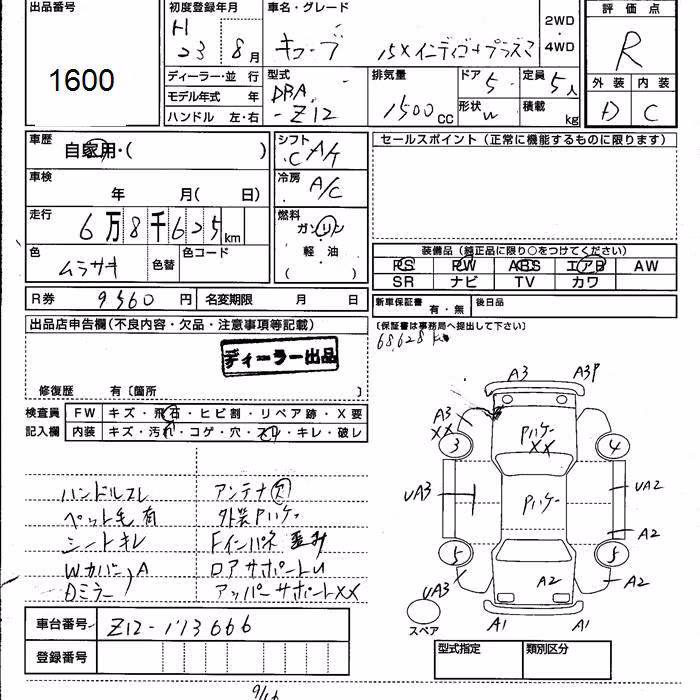 出品番号
1600
初度登録年月
H 23 8月
ディーラー・並 行
モデル年式 年
ハンドル 左・右
車名・グレード
キューブ 15Xインディゴ+プラズマ
2WD
・
4WD
型式
DBA
-Z12
排気量
1500 cc
ドア 5
定員 5人
形状 W
積載 kg
評価点
R
外装 内装
D C
車歴
自家用・( )
車検
年 月( 日)
走行
6万8千625km
色
ムラサキ
色替
色コード
シフト
C A/T
冷房
A/C
燃料
ガソリン
軽 油
( )
セールスポイント (正常に機能するものに限ります)
装備品 (純正品に限り○をつけてください)
PS PW ABS エアB AW
SR ナビ TV カワ
R券 9560円
名変期限 月 日
新車保証書 有・無
後日品
(保証書は事務局へ提出して下さい)
68,628 km
出品店申告欄(不良内容・欠品・注意事項等記載)
ディーラー出品
修復歴 有〔箇所 〕
検査員
記入欄
FW キズ・飛石・ヒビ割・リペア跡・X要
内装 キズ・汚れ・コゲ・穴・スレ・キレ・破レ
ハンドルスレ アンテナ欠
ペット毛有 外装Pハゲ
シートキレ Fインパネ歪み
WカバーA ロアサポートU
Dミラー アッパーサポートXX
A3 A3P
A3
XX
3 4
Pハゲ
XX
UA3
Pハゲ
UA2
A2
5 5
UA3
A2
A2
スペア
A1 A1
車台番号 Z12-113666
登録番号
型式指定 類別区分